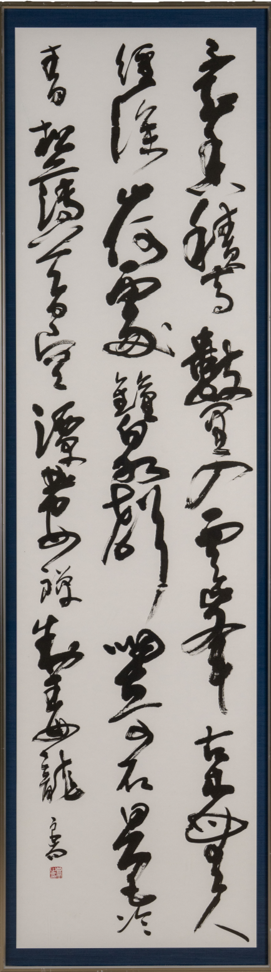 不知香積寺數里入雲峯古木無人
徑深山何處鐘泉聲咽危石日色冷
青松薄暮空潭曲安禪制毒龍